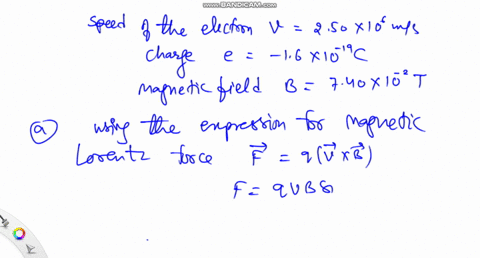 www.BANDICAM.com
speed of the electron V = 2.50 × 10⁶ m/s
charge e = -1.6 × 10⁻¹⁹ C
magnetic field B = 7.40 × 10⁻² T
(a) using the expression for magnetic
Lorentz force F⃗ = q(V⃗ × B⃗)
F = qVBS